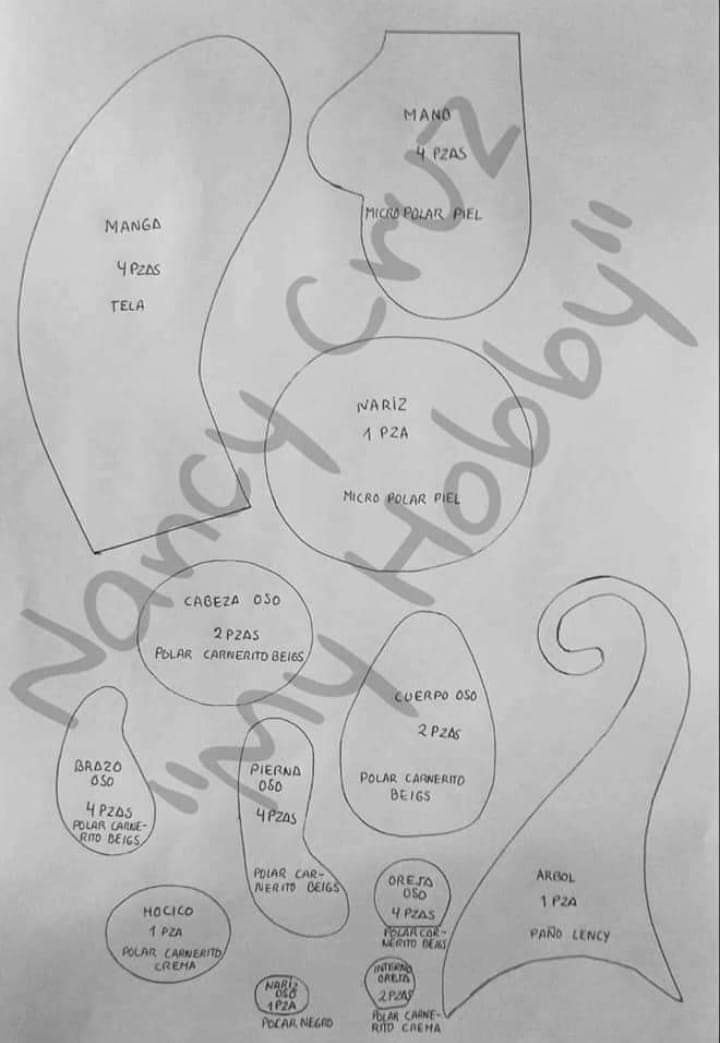 MANO
4 PZAS
MICRO POLAR PIEL
MANGA
4 PZAS
TELA
NARIZ
1 PZA
MICRO POLAR PIEL
CABEZA OSO
2 PZAS
POLAR CARNERITO BEIGS
CUERPO OSO
2 PZAS
POLAR CARNERITO
BEIGS
BRAZO
OSO
4 PZAS
POLAR CARNE-
RITO BEIGS
PIERNA
OSO
4 PZAS
POLAR CAR-
NERITO BEIGS
ARBOL
1 PZA
PAÑO LENCY
OREJA
OSO
4 PZAS
POLAR CAR-
NERITO BEIGS
HOCICO
1 PZA
POLAR CARNERITO
CREMA
NARIZ
OSO
1 PZA
POLAR NEGRO
INTERNO
OREJA
2 PZAS
POLAR CARNE-
RITO CREMA
Nancy Cruz
"My Hobby"